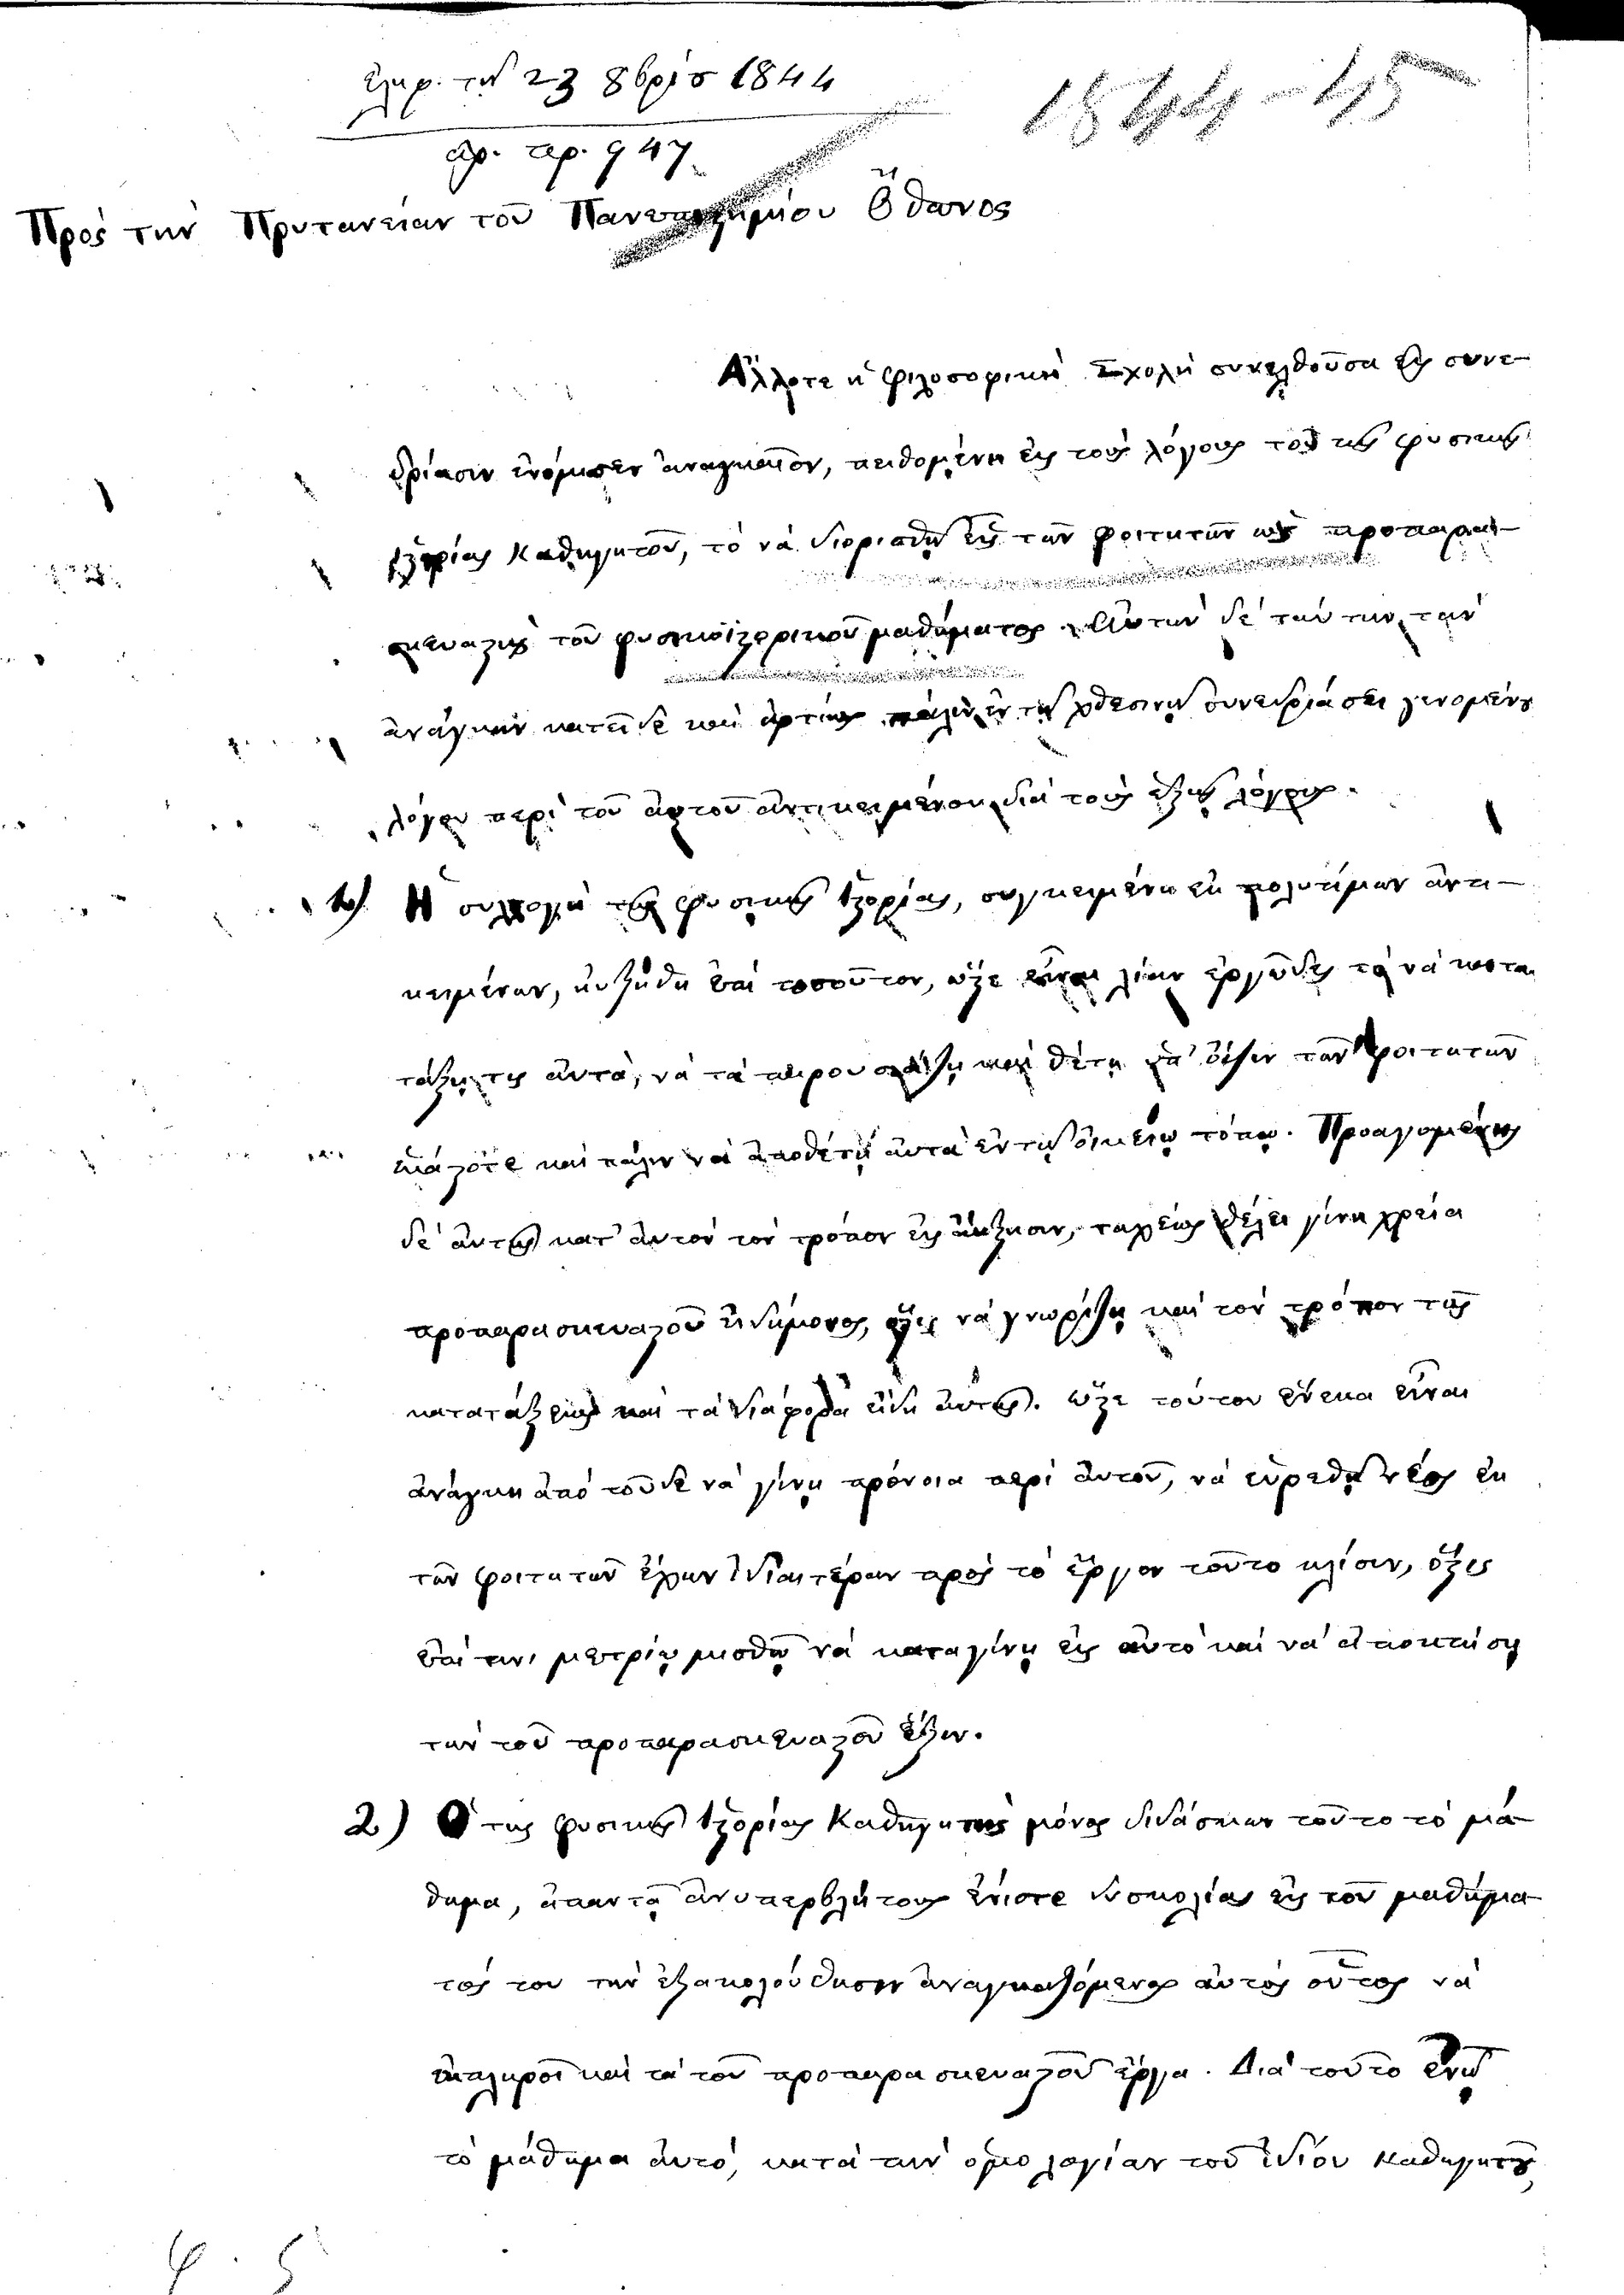 ἐλήφ. τῇ 23 8βρίσ 1844
1844-45
ἀρ. πρ. 947
Πρὸς τὴν Πρυτανείαν τοῦ Πανεπιστημίου Ὄθωνος
Ἄλλοτε ἡ φιλοσοφικὴ Σχολὴ συνελθοῦσα εἰς συνε-
δρίασιν ἐνόμισεν ἀναγκαῖον, πειθομένη εἰς τοὺς λόγους τοῦ τῆς φυσικῆς
ἱστορίας Καθηγητοῦ, τὸ νὰ διορισθῇ εἷς τῶν φοιτητῶν ὡς προπαρα-
σκευαστὴς τοῦ φυσικοϊστορικοῦ μαθήματος. Αὐτὴν δὲ ταύτην τὴν
ἀνάγκην κατεῖδε καὶ ἀρτίως πάλιν ἐν τῇ χθεσινῇ συνεδριάσει γενομένου
λόγου περὶ τοῦ αὐτοῦ ἀντικειμένου διὰ τοὺς ἑξῆς λόγους.
1) Ἡ συλλογὴ τῆς φυσικῆς ἱστορίας, συγκειμένη ἐκ πολυτίμων ἀντι-
κειμένων, ηὐξήθη ἐπὶ τοσοῦτον, ὥστε εἶναι λίαν ἐργῶδες τὸ νὰ κατα
τάξῃ τις αὐτὰ, νὰ τὰ παρουσιάζῃ καὶ θέτῃ ὑπ' ὄψιν τῶν φοιτητῶν
ἑκάστοτε καὶ πάλιν νὰ ἀποθέτῃ αὐτὰ ἐν τῷ οἰκείῳ τόπῳ. Προαγομένης
δὲ αὐτῆς κατ' αὐτὸν τὸν τρόπον εἰς αὔξησιν, ταχέως θέλει γίνει χρεία
προπαρασκευαστοῦ εἰδήμονος, ὅστις νὰ γνωρίζῃ καὶ τὸν τρόπον τῆς
κατατάξεως καὶ τὰ διάφορα εἴδη αὐτῆς. ὥστε τούτου ἕνεκα εἶναι
ἀνάγκη ἀπὸ τοῦδε νὰ γίνῃ πρόνοια περὶ αὐτοῦ, νὰ εὑρεθῇ νέος ἐκ
τῶν φοιτητῶν ἔχων ἰδιαιτέραν πρὸς τὸ ἔργον τοῦτο κλίσιν, ὅστις
ἐπί τινι μετρίῳ μισθῷ νὰ καταγίνῃ εἰς αὐτὸ καὶ νὰ ἀποκτήσῃ
τὴν τοῦ προπαρασκευαστοῦ ἕξιν.
2) Ὁ τῆς φυσικῆς ἱστορίας Καθηγητὴς μόνος διδάσκων τοῦτο τὸ μά-
θημα, ἀπαντᾷ ἀνυπερβλήτους ἐνίοτε δυσκολίας εἰς τοῦ μαθήμα-
τός του τὴν ἐξακολούθησιν ἀναγκαζόμενος αὐτὸς οὗτος νὰ
ἐκπληροῖ καὶ τὰ τοῦ προπαρασκευαστοῦ ἔργα. Διὰ τοῦτο ἐνῷ
τὸ μάθημα αὐτὸ, κατὰ τὴν ὁμολογίαν τοῦ ἰδίου Καθηγητοῦ,